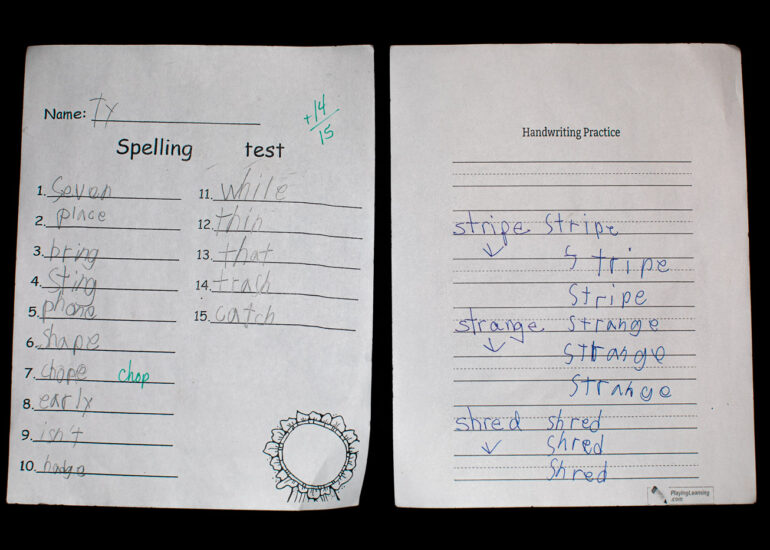 Name: Ty
+14/15
Spelling test
1. Seven
2. place
3. bring
4. Sting
5. phone
6. shape
7. chope chop
8. early
9. isn't
10.
11. while
12. thin
13. that
14. trash
15. catch
Handwriting Practice
stripe Stripe
Stripe
Stripe
strange Strange
Strange
Strange
shred shred
Shred
Shred
PlayingLearning
.com